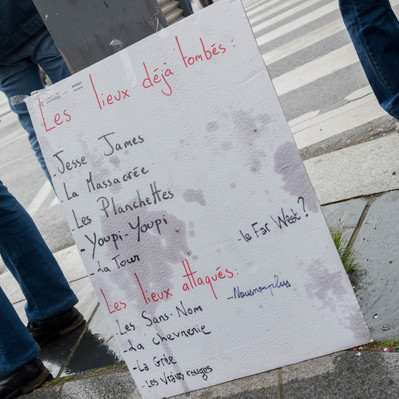 Les lieux déjà tombés :
- Jesse James
- La Massacrée
- Les Planchettes
- Youpi-Youpi
- La Tour
- le Far West ?
Les lieux attaqués :
- Les Sans-Nom
- Nousmonplus
- La Chevrerie
- La Grise
- Les Vrais rouges